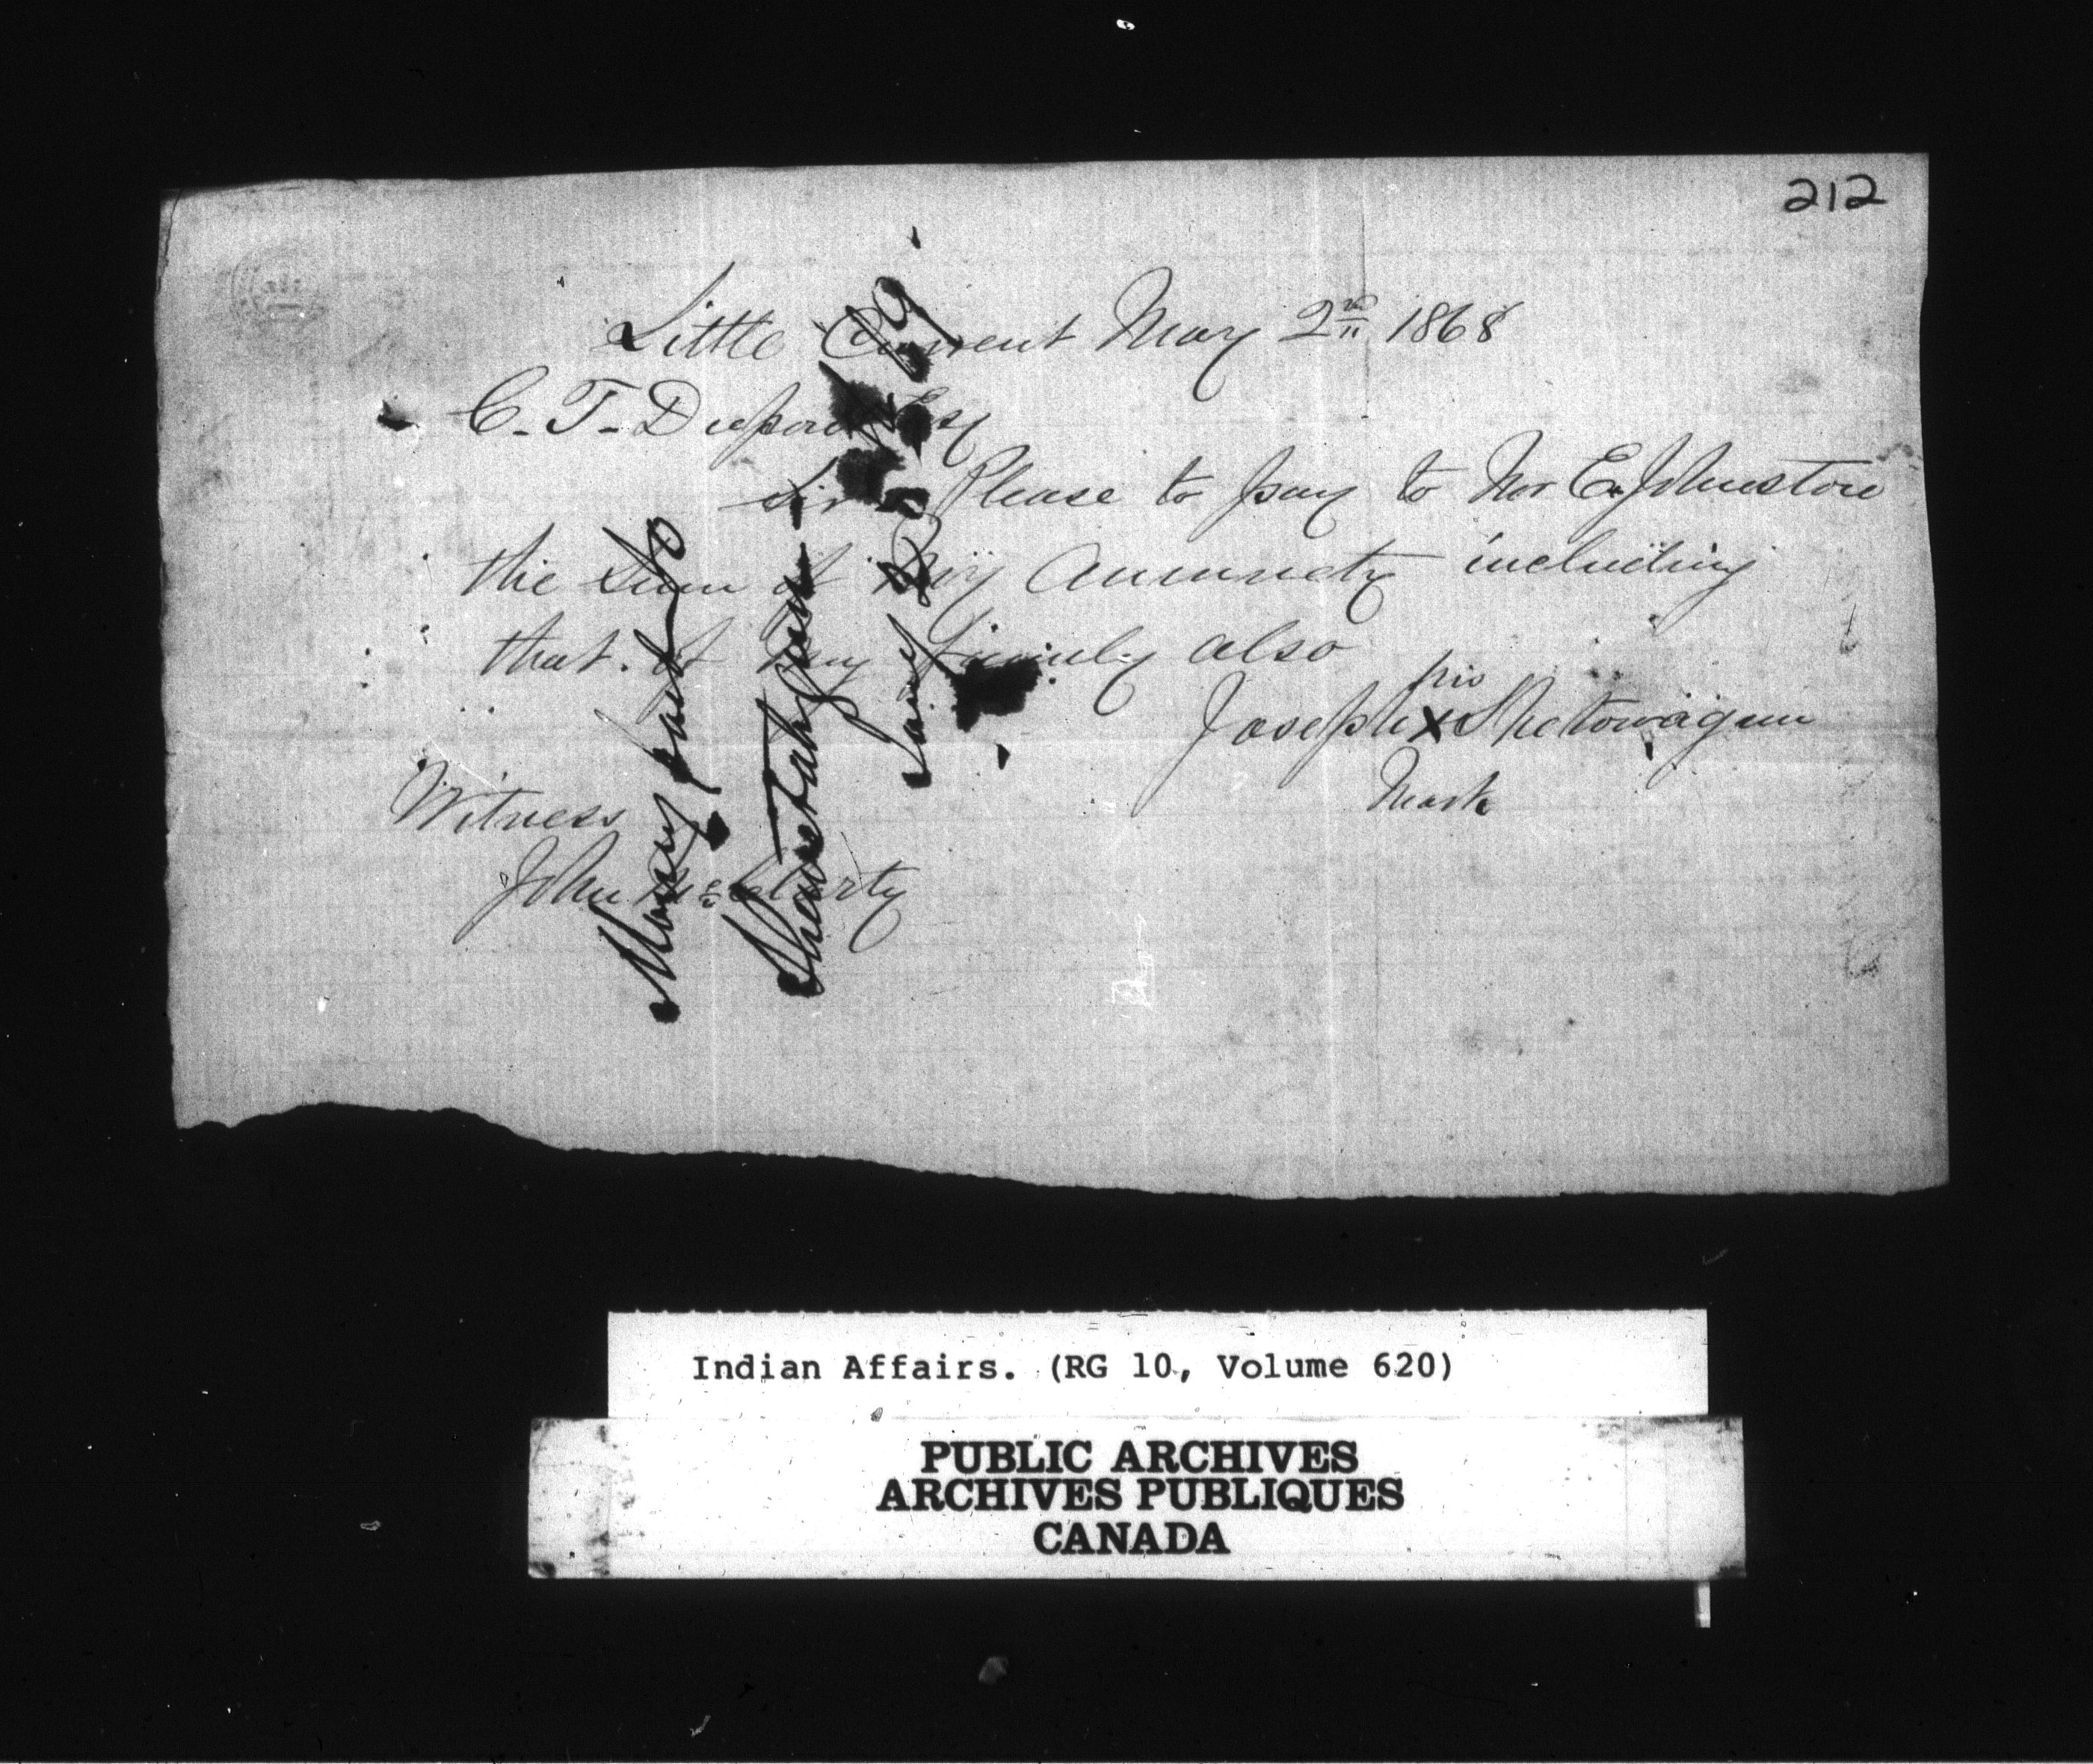 212
Little Current May 2nd 1868
C. T. Dupont Esq
Sir Please to pay to Mr E. Johnston
the Sum of My Anunnety including
that of my Fimily also
his
Joseph X Shetowagun
Mark
Witness
John McCarty
Money paid to
Shawetahgun
Indian Affairs. (RG 10, Volume 620)
PUBLIC ARCHIVES
ARCHIVES PUBLIQUES
CANADA